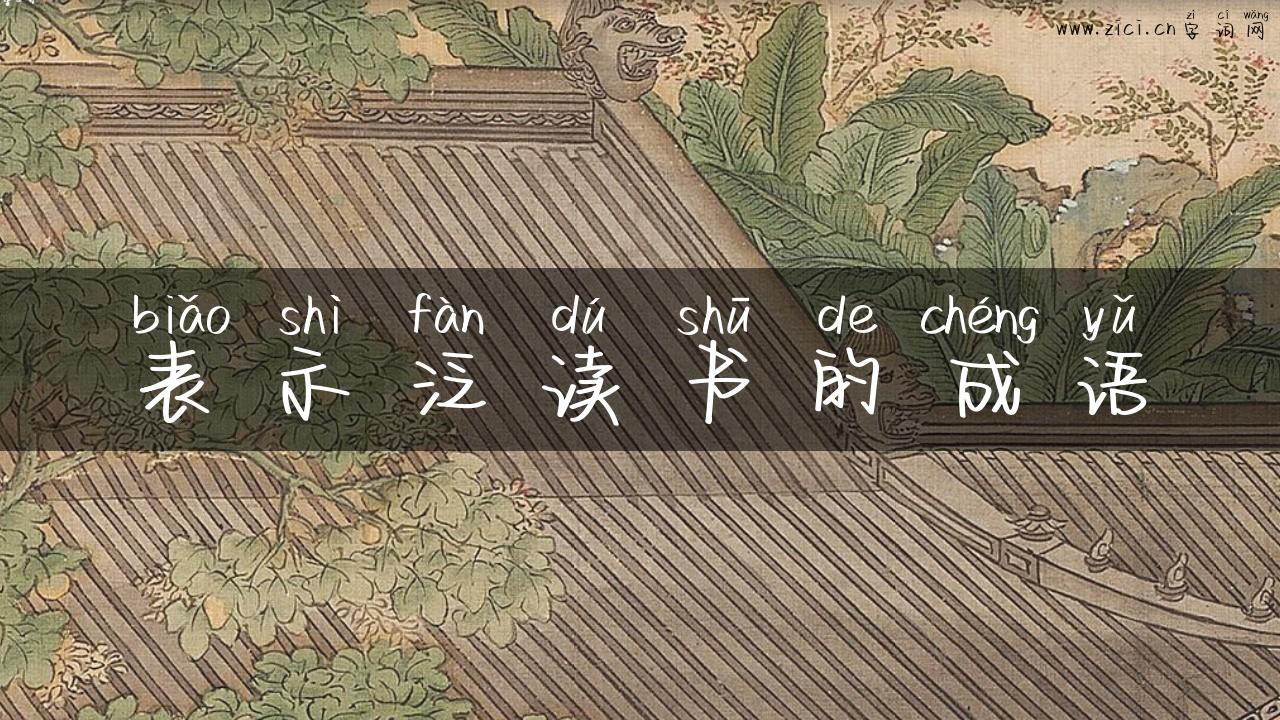 zì cí wǎng
www.zici.cn 字 词 网
biǎo shì fàn dú shū de chéng yǔ
表 示 泛 读 书 的 成 语